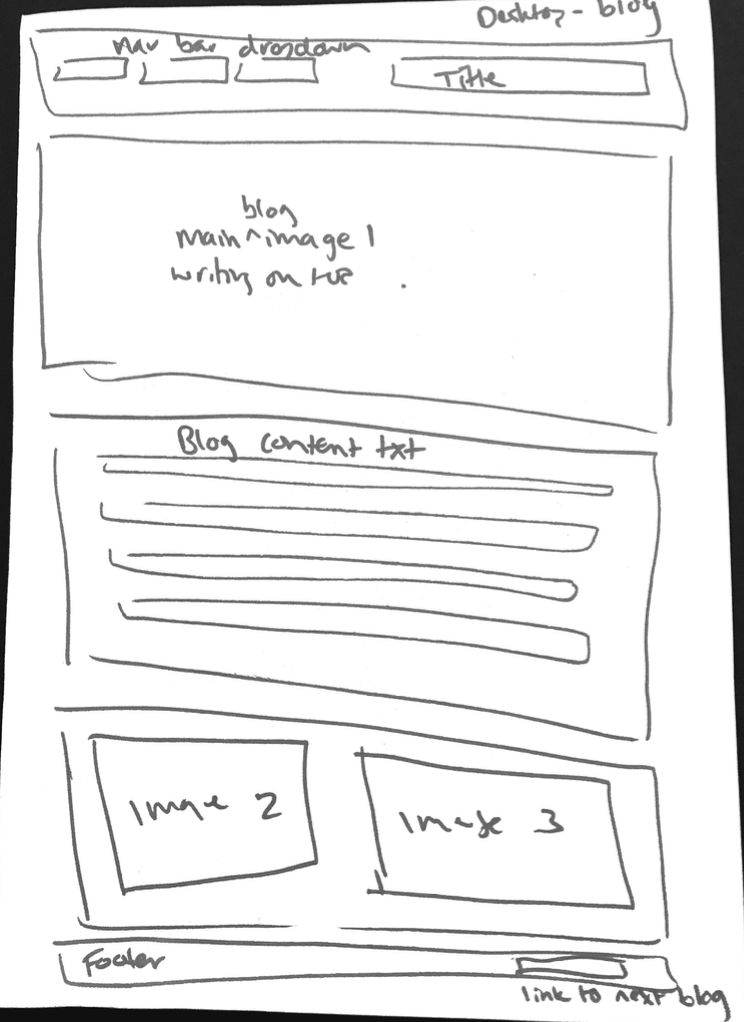 Desktop - blog
nav bar dropdown
Title
blog
main ^ image 1
writing on
Blog content txt
Image 2
Image 3
Footer
link to next blog